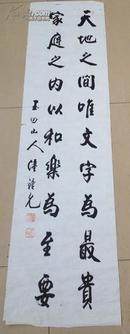 天地之間唯文字為最貴
家庭之内以和樂為至要
玉田山人